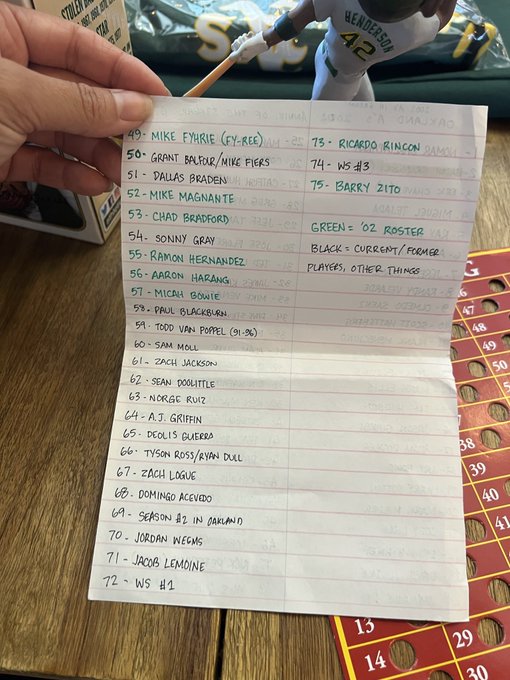 STOLEN BAS
STAR
HENDERSON
42
49- MIKE FYHRIE (FY-REE)
50- GRANT BALFOUR/MIKE FIERS
51 - DALLAS BRADEN
52- MIKE MAGNANTE
53- CHAD BRADFORD
54- SONNY GRAY
55- RAMON HERNANDEZ
56- AARON HARANG
57- MICAH BOWIE
58- PAUL BLACKBURN
59- TODD VAN POPPEL (91-96)
60- SAM MOLL
61- ZACH JACKSON
62- SEAN DOOLITTLE
63- NORGE RUIZ
64- A.J. GRIFFIN
65- DEOLIS GUERRA
66- TYSON ROSS/RYAN DULL
67- ZACH LOGUE
68- DOMINGO ACEVEDO
69- SEASON #2 IN OAKLAND
70- JORDAN WEEMS
71- JACOB LEMOINE
72- WS #1
73- RICARDO RINCON
74- WS #3
75- BARRY ZITO
GREEN = '02 ROSTER
BLACK = CURRENT/FORMER
PLAYERS, OTHER THINGS
G
46
47
48
49
50
38
39
40
13
14
29
30